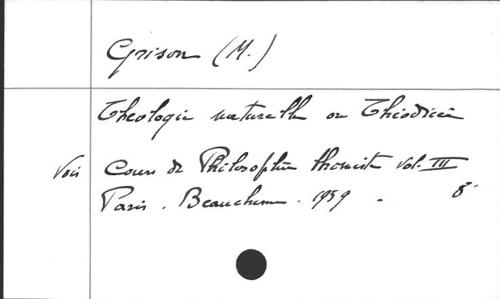 Grison (M.)
Theologie naturelle ou Théodicée
Voir Cours de Philosophie thomiste Vol. III
Paris. Beauchesne. 1959. 8°